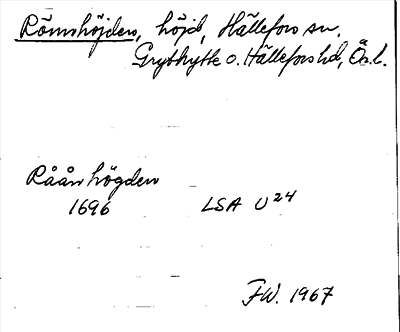 Römshöjden, höjd, Hällefors sn.
Grythytte o. Hällefors hd, Ös. l.
Råånhögden
1696 LSA U24
FW. 1967